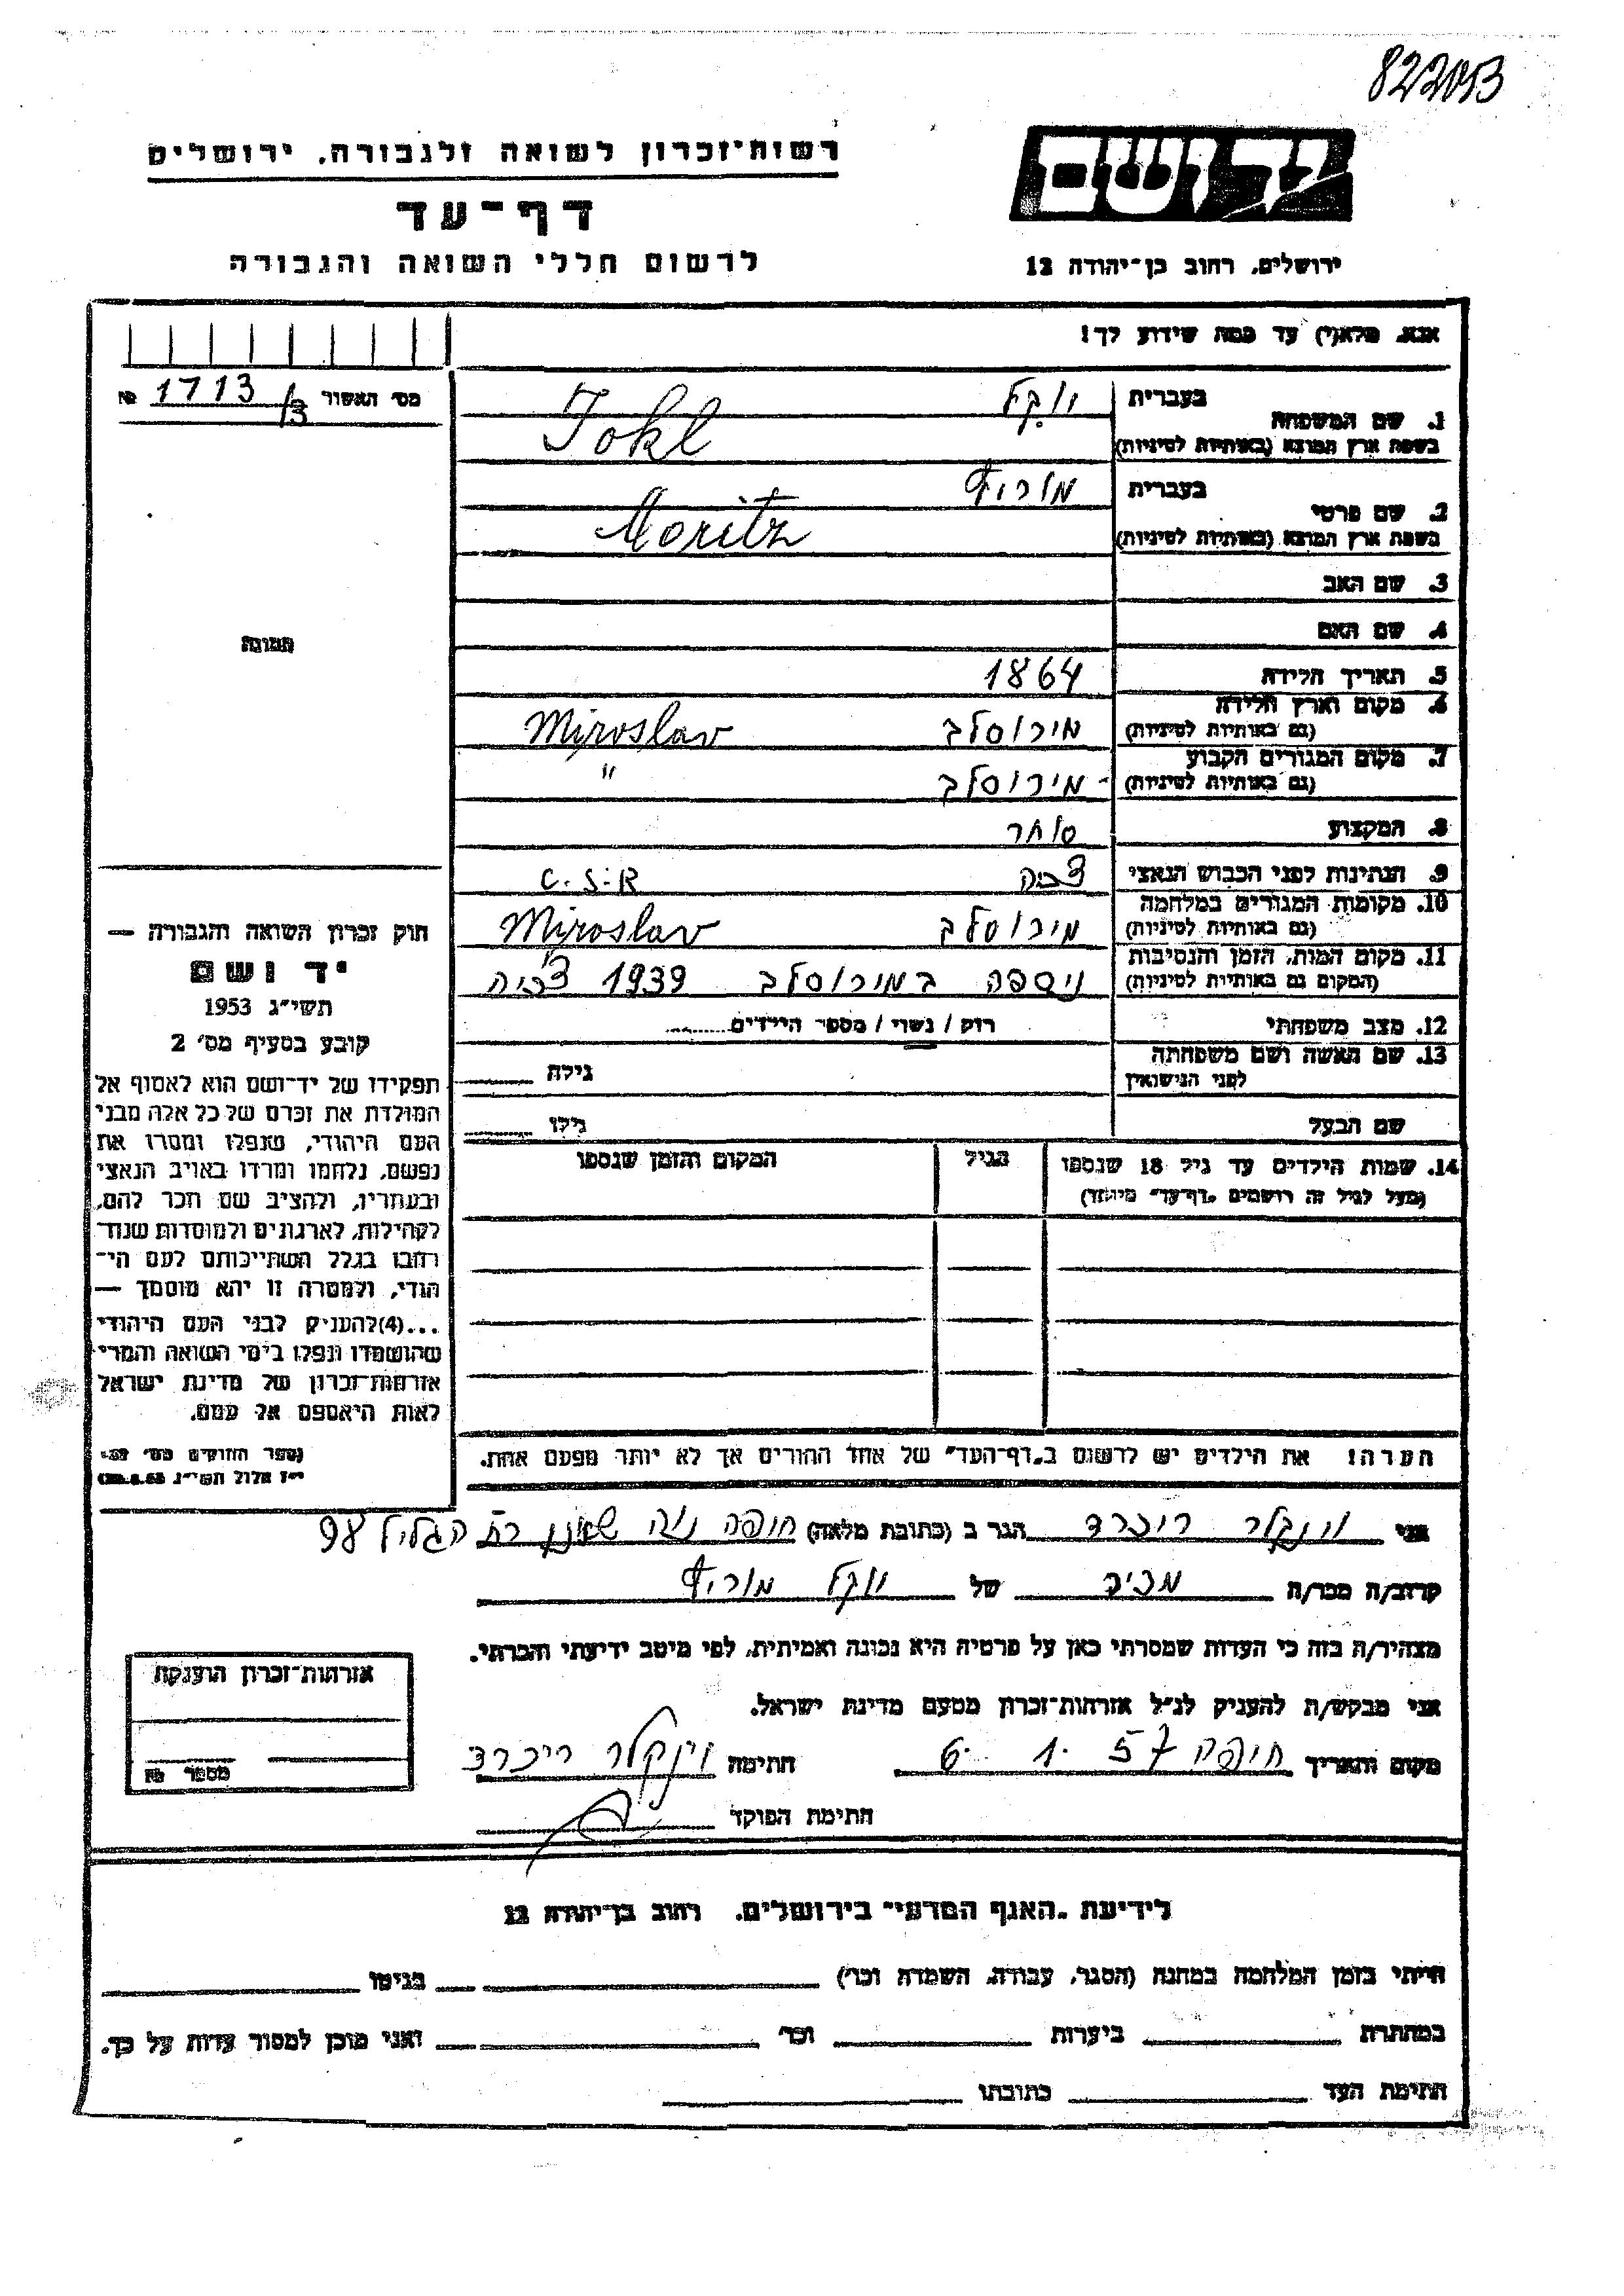 822053
יד ושם
ירושלים, רחוב בן־יהודה 12
רשות־זכרון לשואה ולגבורה, ירושלים
דף־עד
לרשום חללי השואה והגבורה
אנא, מלא(י) עד כמה שידוע לך!
מס׳ האשור 1713/3 №
1. שם המשפחה
בעברית יוקל
בשפת ארץ המוצא (באותיות לטיניות) Jokl
2. שם פרטי
בעברית מוריץ
בשפת ארץ המוצא (באותיות לטיניות) Moritz
3. שם האב
4. שם האם
תמונה
5. תאריך הלידה 1864
6. מקום וארץ הלידה
(גם באותיות לטיניות) מירוסלב Miroslav
7. מקום המגורים הקבוע
(גם באותיות לטיניות) מירוסלב "
8. המקצוע סוחר
9. הנתינות לפני הכבוש הנאצי צ׳כיה C.S.R
10. מקומות המגורים במלחמה
(גם באותיות לטיניות) מירוסלב Miroslav
11. מקום המות, הזמן והנסיבות
(המקום גם באותיות לטיניות) ניספה במירוסלב 1939 צ׳כיה
12. מצב משפחתי רווק / נשוי / מספר הילדים
13. שם האשה ושם משפחתה
לפני הנישואין גילה
שם הבעל גילו
14. שמות הילדים עד גיל 18 שנספו הגיל המקום והזמן שנספו
(מעל לגיל זה רושמים „דף־עד" מיוחד)
חוק זכרון השואה והגבורה —
יד ושם
תשי״ג 1953
קובע בסעיף מס׳ 2
תפקידו של יד־ושם הוא לאסוף אל
המולדת את זכרם של כל אלה מבני
העם היהודי, שנפלו ומסרו את
נפשם, נלחמו ומרדו באויב הנאצי
ובעוזריו, ולהציב שם וזכר להם,
לקהילות, לארגונים ולמוסדות שנח־
רבו בגלל השתייכותם לעם הי־
הודי, ולמטרה זו יהא מוסמך —
...(4)להעניק לבני העם היהודי
שהושמדו ונפלו בימי השואה והמרי
אזרחות־זכרון של מדינת ישראל
לאות היאספם אל עמם.
(ספר החוקים מס׳
י״ז אלול תשי״ג
הערה! את הילדים יש לרשום ב„דף־העד" של אחד ההורים אך לא יותר מפעם אחת.
אני וינקלר ריכרד הגר ב (כתובת מלאה) חיפה נוה שאנן רח׳ הגליל 98
קרוב/ה מכר/ה מכיר של יוקל מוריץ
מצהיר/ה בזה כי העדות שמסרתי כאן על פרטיה היא נכונה ואמיתית, לפי מיטב ידיעתי והכרתי.
אני מבקש/ת להעניק לנ״ל אזרחות־זכרון מטעם מדינת ישראל.
מקום ותאריך חיפה 6. 1. 57 חתימה וינקלר ריכרד
חתימת הפוקד
אזרחות־זכרון הוענקה
מספר №
לידיעת „האגף המדעי" בירושלים, רחוב בן־יהודה 12
הייתי בזמן המלחמה במחנה (הסגר, עבודה, השמדה וכו׳) בגיטו
במחתרת ביערות וכו׳ ואני מוכן למסור עדות על כך.
חתימת העד כתובתו